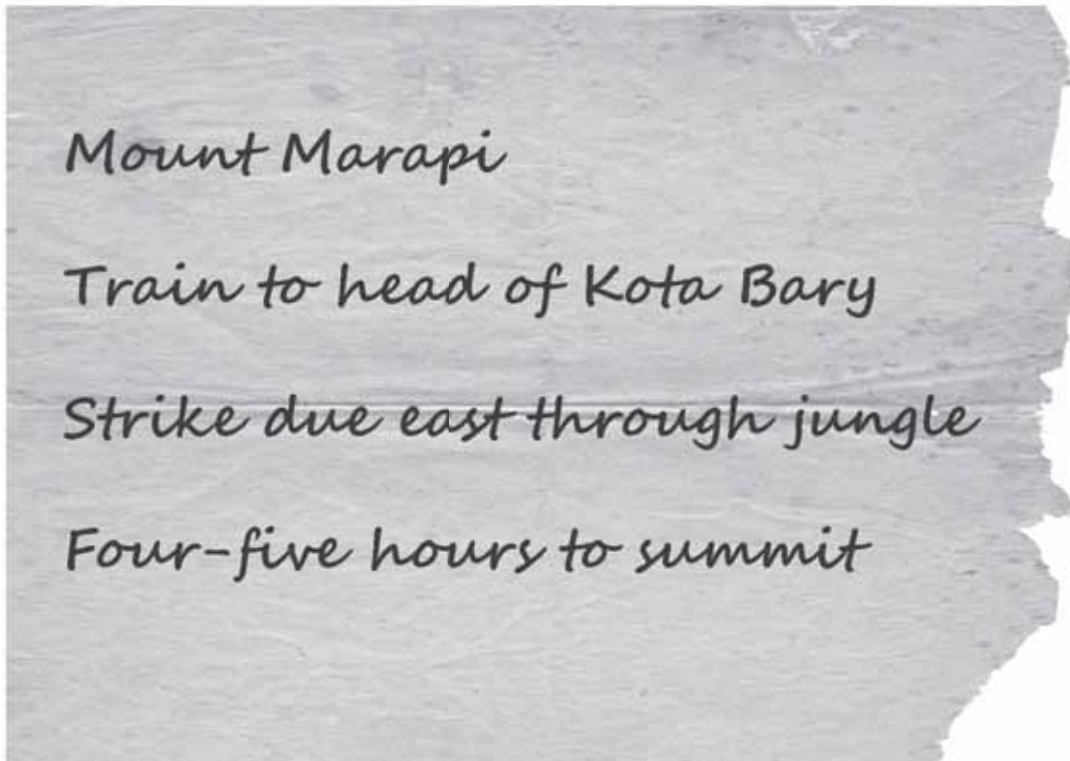 Mount Marapi
Train to head of Kota Bary
Strike due east through jungle
Four-five hours to summit